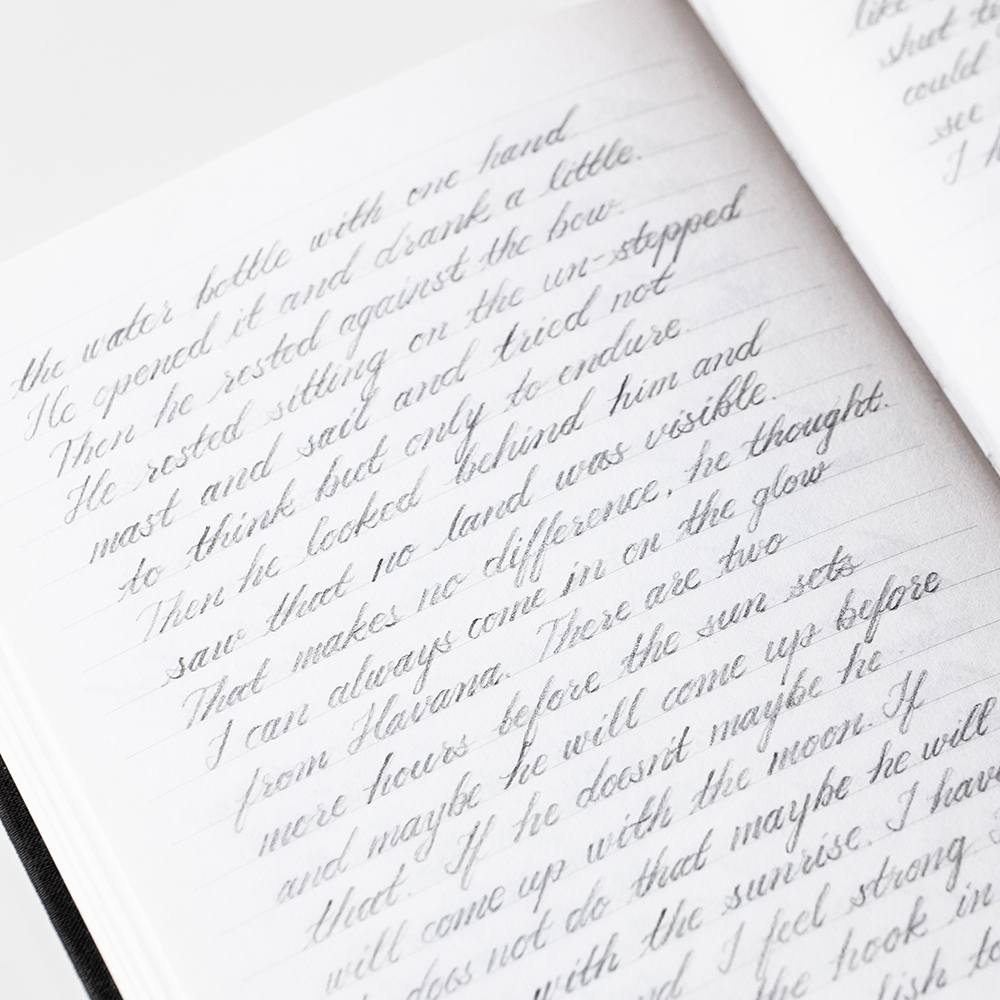 the water bottle with one hand
He opened it and drank a little.
Then he rested against the bow.
He rested sitting on the un-stepped
mast and sail and tried not
to think but only to endure.
Then he looked behind him and
saw that no land was visible.
That makes no difference, he thought.
I can always come in on the glow
from Havana. There are two
more hours before the sun sets
and maybe he will come up before
that. If he doesn't maybe he
will come up with the moon. If
does not do that maybe he will
with the sunrise. I have
I feel strong
the hook in
fish
like
shut
could
see
I